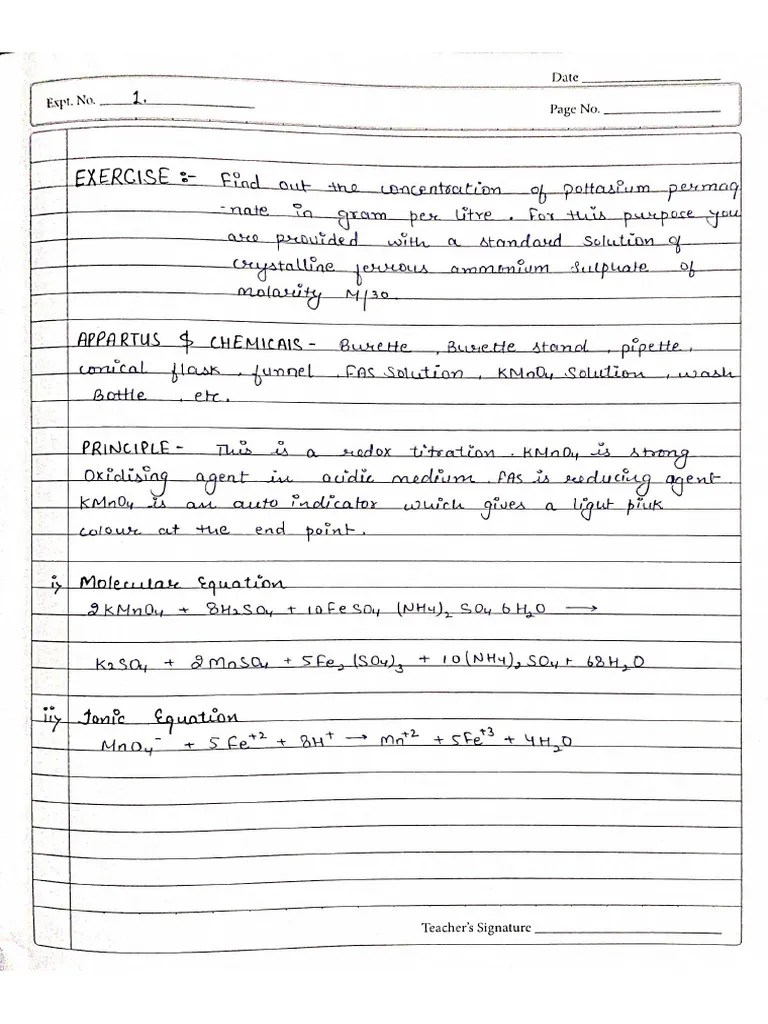 Date
Expt. No. 1.
Page No.
EXERCISE :- Find out the concentration of pottasium permag
-nate in gram per litre. For this purpose you
are provided with a standard solution of
crystalline ferrous ammonium sulphate of
molarity M/30.
APPARTUS & CHEMICAlS - Burette, Burette stand, pipette,
conical flask, funnel, FAS solution, KMnO4 Solution, wash
Bottle, etc.
PRINCIPLE - This is a redox titration. KMnO4 is strong
Oxidising agent in acidic medium. FAS is reducing agent.
KMnO4 is an auto indicator which gives a light pink
colour at the end point.
i) Molecular Equation
2KMnO4 + 8H2SO4 + 10FeSO4 (NH4)2 SO4 6H2O →
K2SO4 + 2MnSO4 + 5Fe2(SO4)3 + 10(NH4)2SO4 + 68H2O
ii) Ionic Equation
MnO4⁻ + 5Fe⁺² + 8H⁺ → Mn⁺² + 5Fe⁺³ + 4H2O
Teacher's Signature